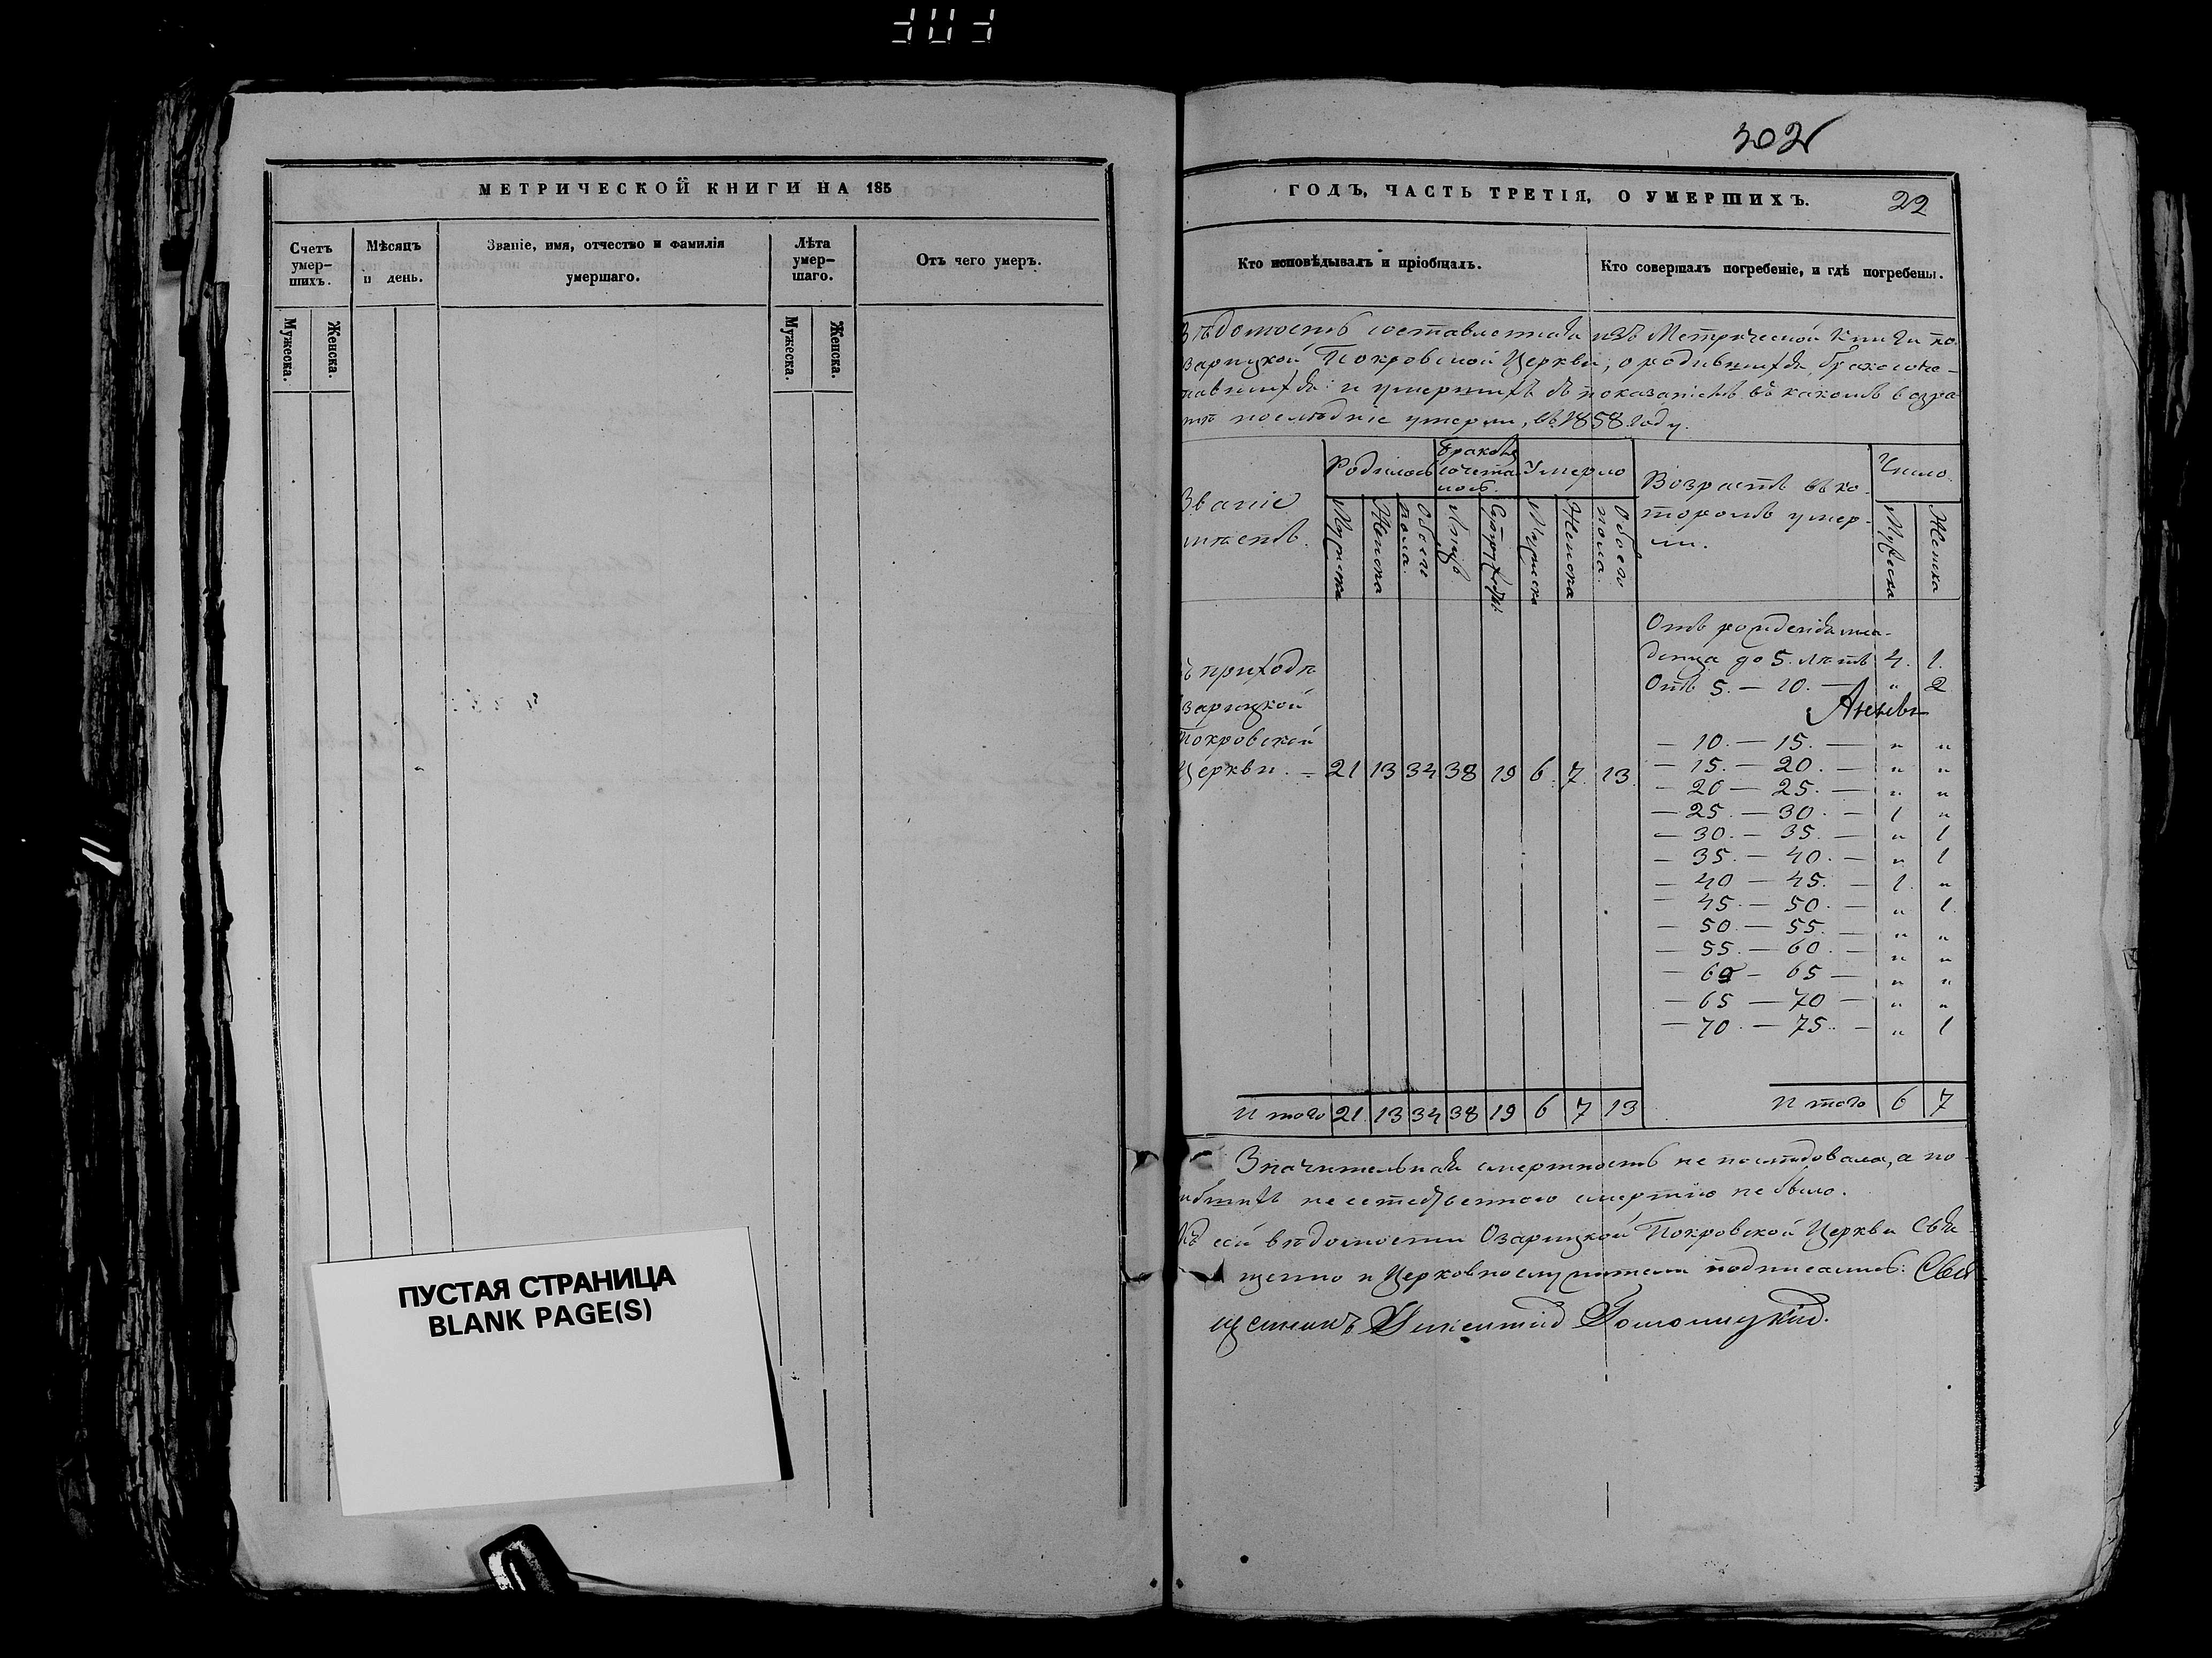 302
МЕТРИЧЕСКОЙ КНИГИ НА 185
Счетъ умер-шихъ.
Мѣсяцъ и день.
Званіе, имя, отчество и фамилія умершаго.
Лѣта умер-шаго.
Отъ чего умеръ.
Мужеска.
Женска.
Мужеска.
Женска.
ПУСТАЯ СТРАНИЦА
BLANK PAGE(S)
ГОДЪ, ЧАСТЬ ТРЕТІЯ, О УМЕРШИХЪ.
22
Кто исповѣдывалъ и пріобщалъ.
Кто совершалъ погребеніе, и гдѣ погребены.
вѣдомость составленная изъ Метрической Книги по
зарицкой Покровской Церкви, о родившихся, бракосоче-
тавшихся и умершихъ съ показаніемъ въ какомъ возра
тѣ послѣдніе умерли, въ 1858 году.
Званіе
мѣстъ.
Родилось
Бракомъ сочета лось.
Умерло
Возрастъ въ ко-
торомъ умер-
ли.
Число
Мужеска
Женска
Обоего пола.
Лицъ
Супружествъ
Мужеска
Женска
Обоего пола.
Мужеска
Женска
Отъ рожденія мла-
денца до 5. лѣтъ 4. 1.
Отъ 5. — 10. — " 2
ъ приходѣ
зарицкой
Покровской
Церкви. — 21 13 34 38 19 6 7 13
— 10. — 15. — " "
— 15. — 20. — " "
— 20 — 25. — " "
— 25. — 30. — 1 "
— 30. — 35. — " 1
— 35. — 40. — " 1
— 40 — 45. — 1. "
— 45. — 50. — " 1.
— 50. — 55. — " "
— 55. — 60. — " "
— 60 — 65 — " "
— 65 — 70 — " "
— 70. — 75. — " 1
Итого 21. 13 34 38 19 6 7 13
Итого 6 7
Значительная смертность не послѣдовала, а по
гибшихъ неестественною смертію не было.
Къ сей вѣдомости Озарицкой Покровской Церкви Свя-
щенно и Церковнослужители подписались: Свя
щенникъ